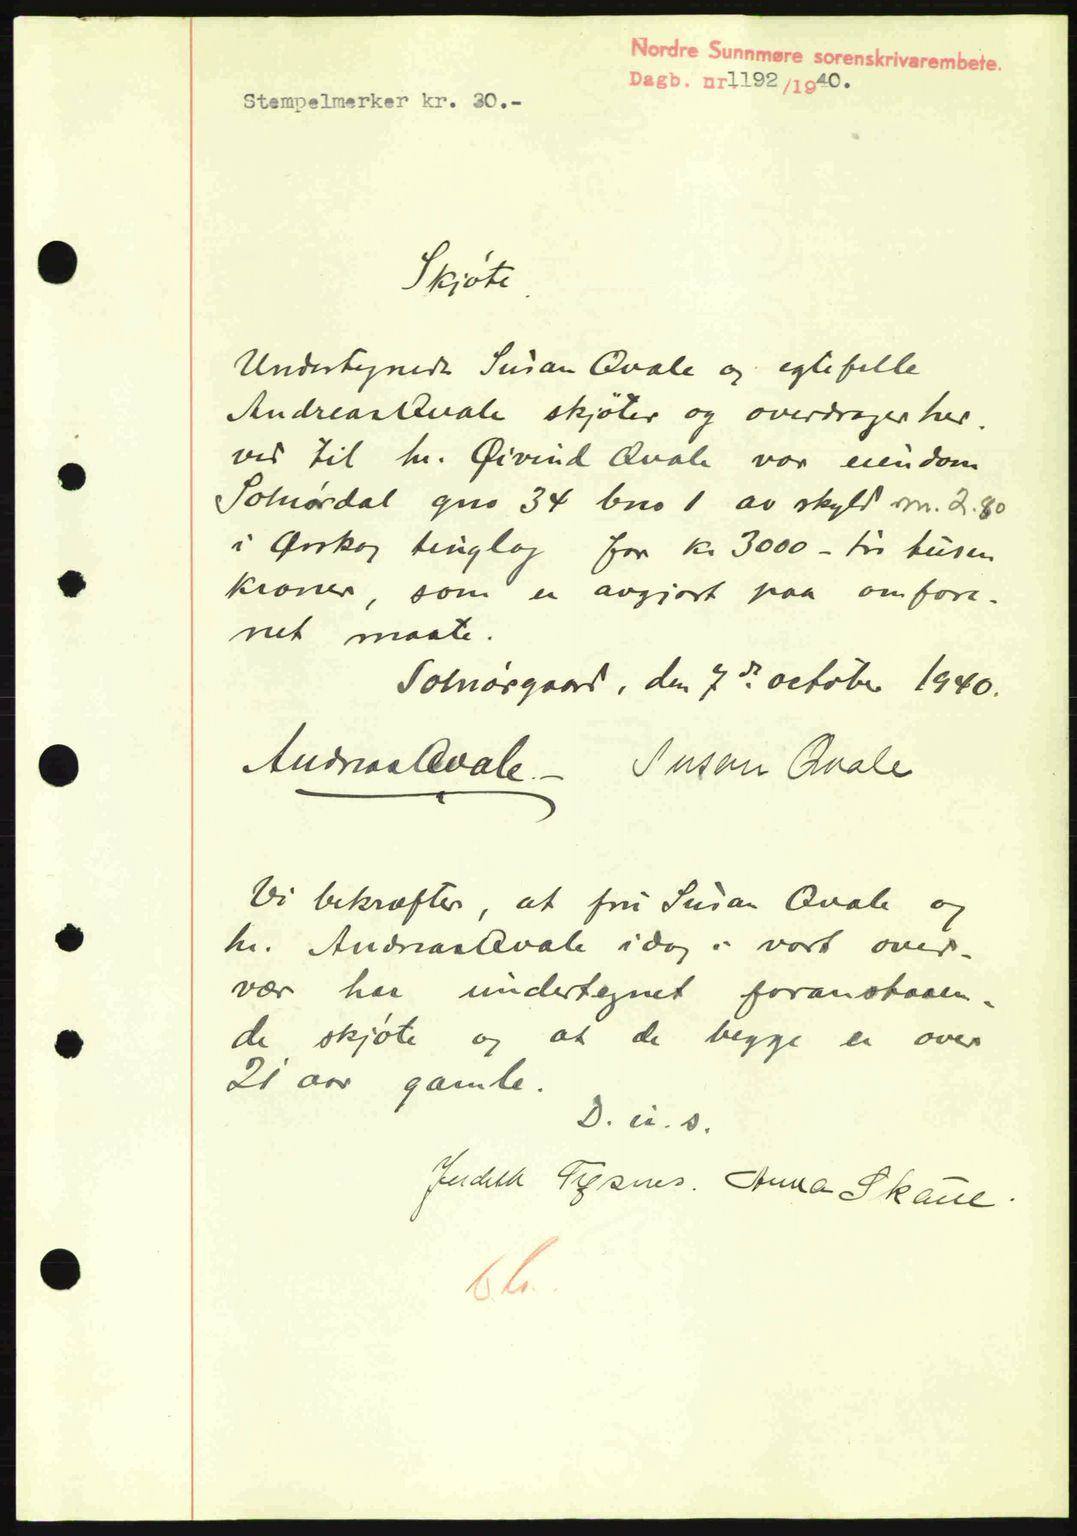 Nordre Sunnmøre sorenskrivarembete.
Dagb. nr 1192/1940.
Stempelmerker kr. 30.-
Skjøte
Undertegnede Susan Qvale og egtefelle
Andreas Qvale skjøter og overdrager her-
ved til hr. Øivind Qvale vor eiendom
Solnørdal gno 34 bno 1 av skyld m. 2.80
i Ørskog tinglag for kr 3000 - tre tusen
kroner, som er avgjort paa omfore-
net maate.
Solnørgaard, den 7de october 1940.
Andreas Qvale.- Susan Qvale
Vi bekræfter, at fru Susan Qvale og
hr. Andreas Qvale idag i vort over-
vær har undertegnet foranstaaen-
de skjøte og at de begge er over
21 aar gamle.
D. u. s.
Judith Tysnes. Anna Skaue.